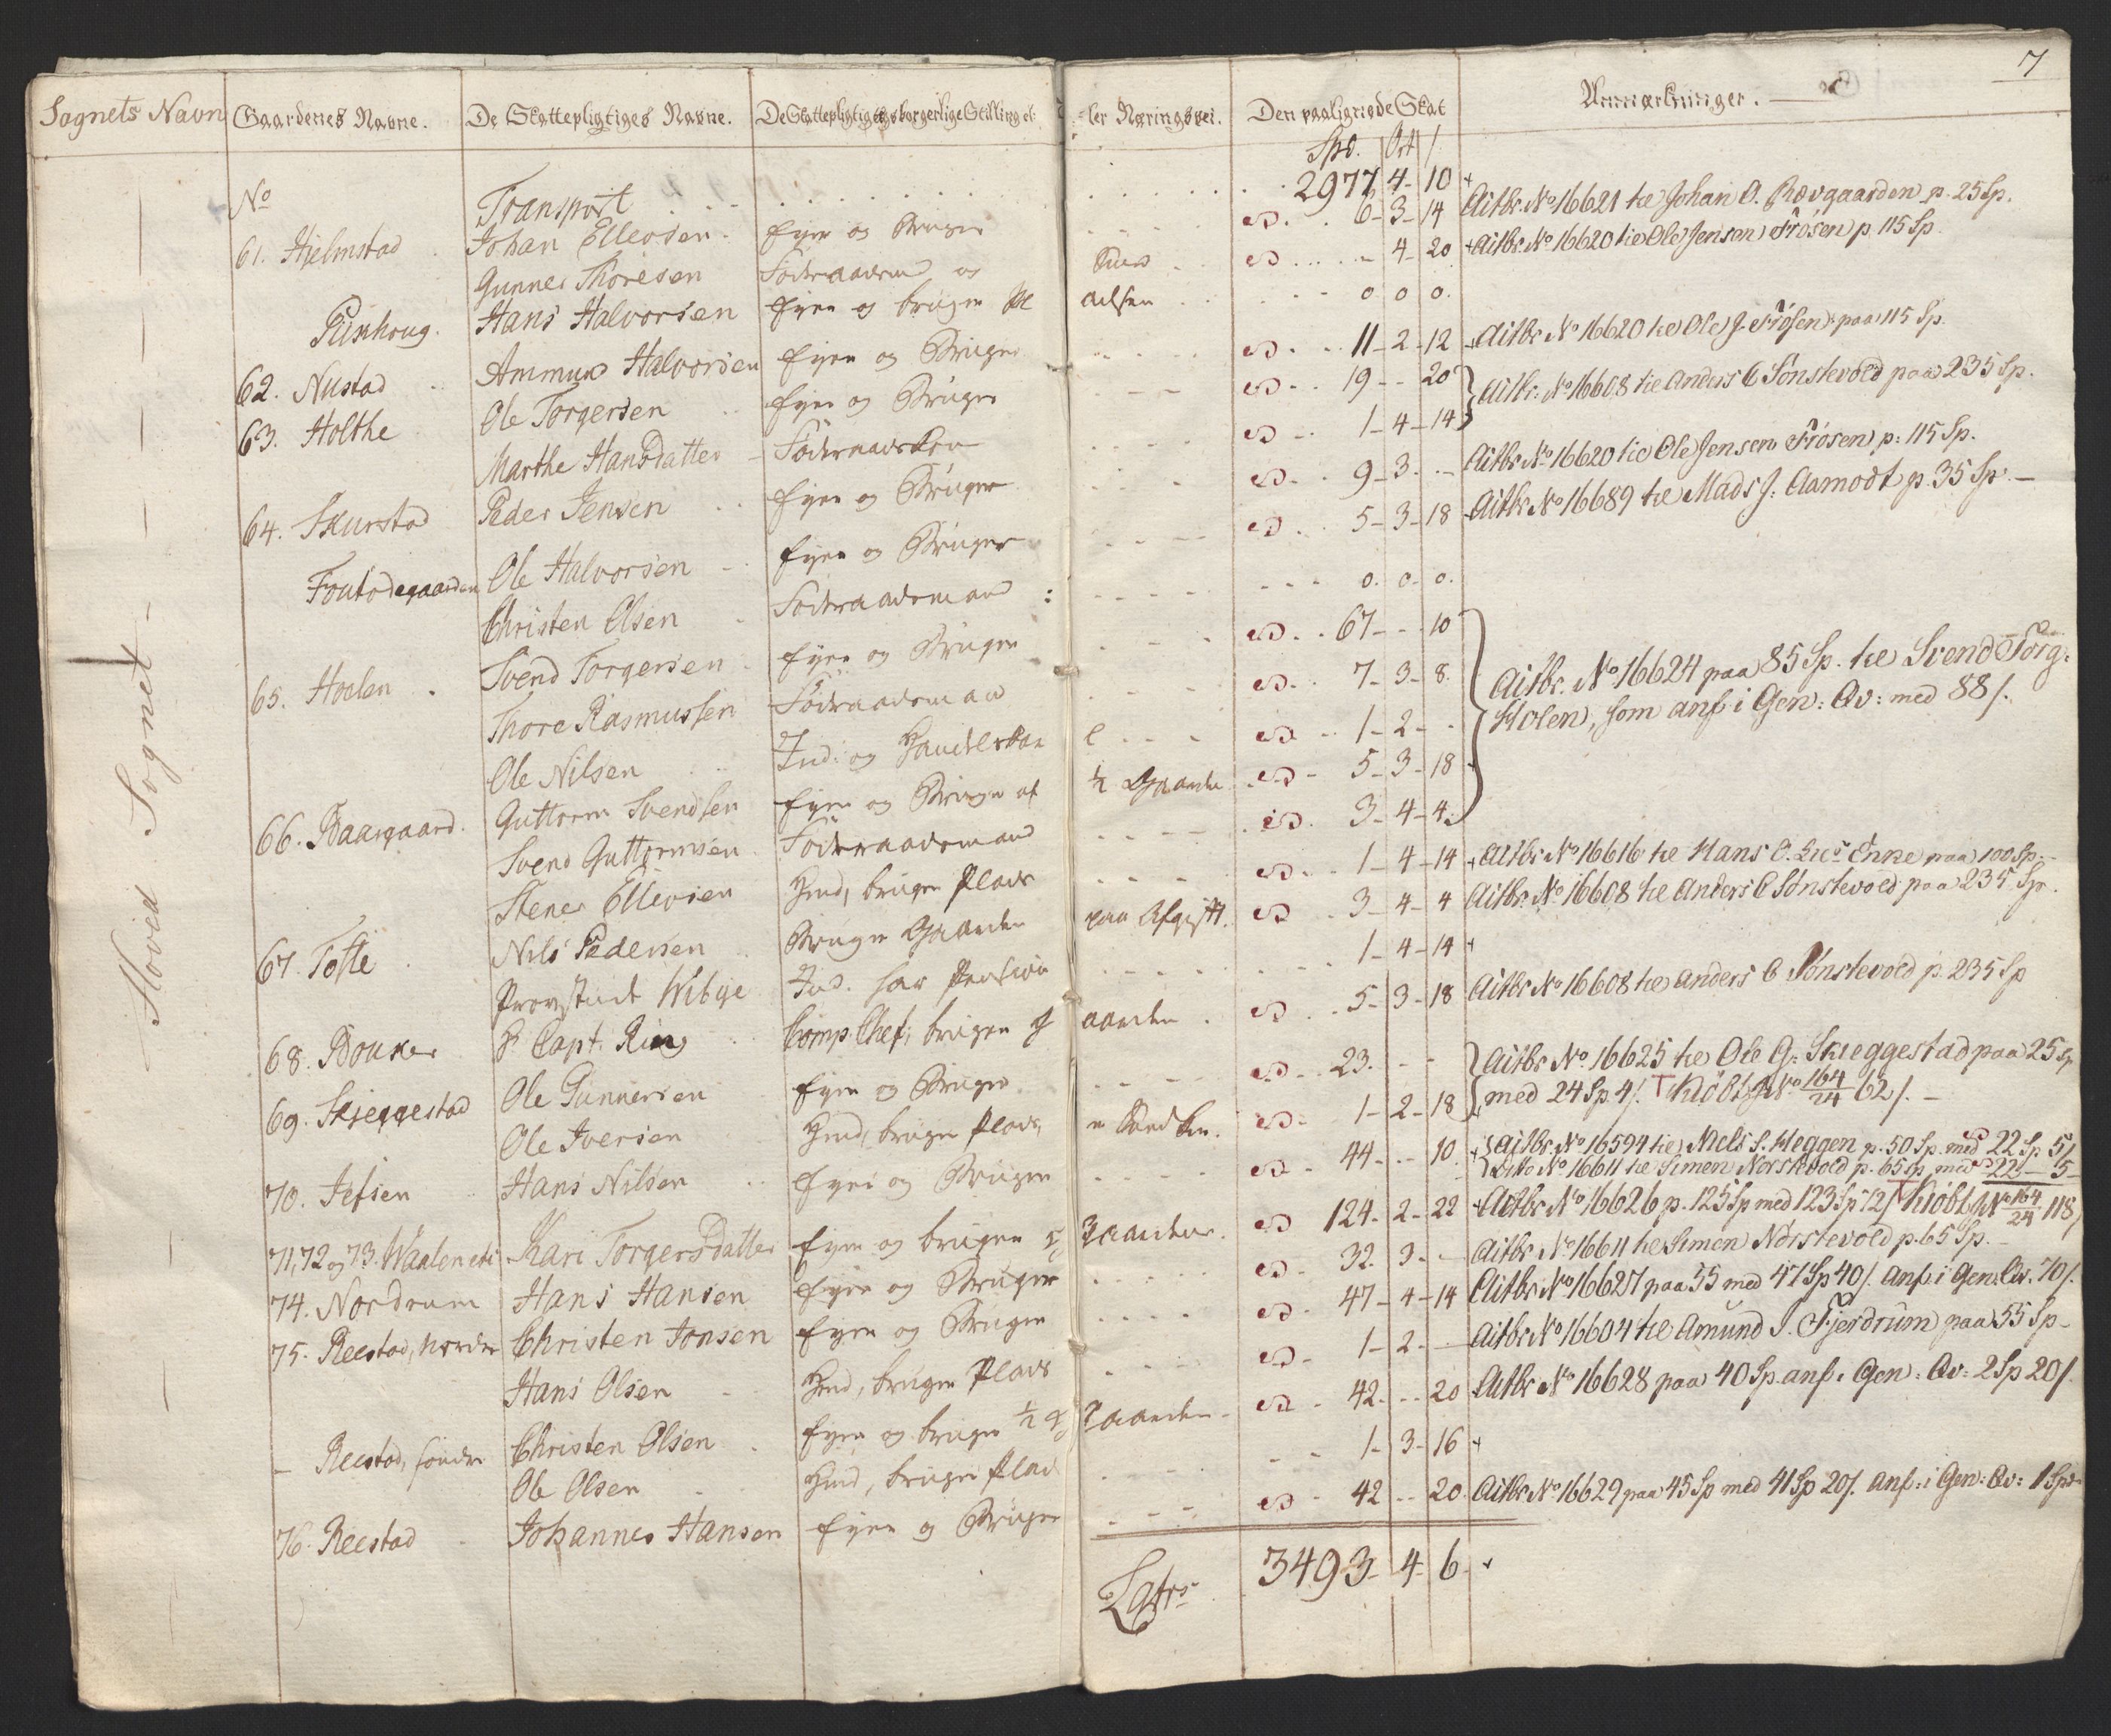 7
Sognets Navn | Gaardenes Navne. | De Skattepligtiges Navne. | De Skattepligtiges borgerlige Stilling el- | -ler Næringsvei. | Den paalignede Skat | Anmærkninger.
Spd. | Ort | /
Hoved Sognet
No Transport 2977 4- 10 +
61. Hjelmstad Johan Ellevsen Eyer og Bruger do 6- 3- 14 Actbr. No 16621 til Johan O. Rævgaarden p. 25 Sp.
Gunner Thoresen Föderaadsmand og do - 4- 20 + Actbr. No 16620 til Ole Jensen Frösen p. 115 Sp.
Hans Halvorsen Eyer og bruger 0 0 0.
62. Nustad Ammund Halvorsen Eyer og Bruger do 11- 2- 12 + Actbr. No 16620 til Ole J. Frösen paa 115 Sp.
63. Holthe Ole Torgersen Eyer og Bruger do 19 - 20 Actbr. No 16608 til Anders C Sönstevold paa 235 Sp.
Marthe Hansdatter do 1- 4- 14
64. Skurstad Peder Jensen Eyer og Bruger do 9- 3. - Actbr. No 16620 til Ole Jensen Frösen p: 115 Sp.
Ole Halvorsen Eyer og Bruger do 5- 3- 18 Actbr. No 16689 til Mads J. Aamodt p. 35 Sp. -
Christen Olsen Föderaadsmand 0. 0- 0.
65. Hoelen Svend Torgersen Eyer og Bruger do 67- - 10
Thore Rasmussen Föderaadsmand do 7- 3- 8. Actbr. No 16624 paa 85 Sp. til Svend Torg:
Ole Nilsen Ind: og do 1- 2- - Holen, som anf i Gen: Qv: med 88 /.
66. Baargaard. Guttorm Svendsen Eyer og Bruger af ½ Gaarden do 5- 3- 18
Svend Guttormsen Föderaadsmand do 3- 4- 4.
Stener Ellevsen Hmd, bruger Plads do 1- 4- 14 + Actbr. No 16616 til Hans Enke paa 100 Sp. -
67. Tofte Nils Pedersen Bruger Gaarden paa Afgift. do 3- 4- 4 Actbr. No 16608 til Anders C Sönstevold paa 235 Sp.
Wibye Ind. har Pension 1- 4- 14 +
68. Capt. Ring Comp. Chef, bruger Gaarden do 5- 3- 18 Actbr. No 16608 til Anders C Sönstevold p. 235 Sp
69. Skjeggestad Ole Gunnersen Eyer og Bruger do 23. - - Actbr. No 16625 til Ole G: Skieggestad paa 25 Sp
Ole Iversen Hmd, bruger Plads do 1- 2- 18 med 24 Sp. 4 /. No 164/24 62 /. -
70. Jefsen Hans Nilsen Eyer og Bruger do 44- - 10 + Actbr. No 16594 til Niels S. Heggen p. 50 Sp. med 22 Sp 5 /
Dito No 16611 til Simen Norstevold p. 65 Sp. med 22 - 5 -
71, 72 og 73. Waalen Kari Torgersdatter Eyer og bruger Gaarden do 124- 2- 22 Actbr. No 16626 p. 125 Sp med 123 Sp 12 / No 164/24 118 /
74. Nordrum Hans Hansen Eyer og Bruger do 32. 3. - Actbr. No 16611 til Simen Norstevold p. 65 Sp. -
75. Reestad, nordre Christen Jonsen Eyer og Bruger do 47- 4- 14 Actbr. No 16627 paa 55 med 47 Sp 40 /. anf. i Gen. Qv. 70 /.
Hans Olsen Hmd, bruger Plads do 1- 2. - Actbr. No 16604 til Amund J. Fjerdrum paa 55 Sp -
- Reestad, söndre Christen Olsen Eyer og bruger ½ Gaarden do 42. - 20 Actbr. No 16628 paa 40 Sp anf. i Gen: Qv: 2 Sp 20 /
Ole Olsen Hmd, bruger Plads 1- 3- 16 +
76. Reestad Johannes Hansen Eyer og Bruger do 42 - 20 Actbr. No 16629 paa 45 Sp med 41 Sp 20 /. anf: i Gen: Qv: 1 Spd
Lats 3493- 4- 6- +